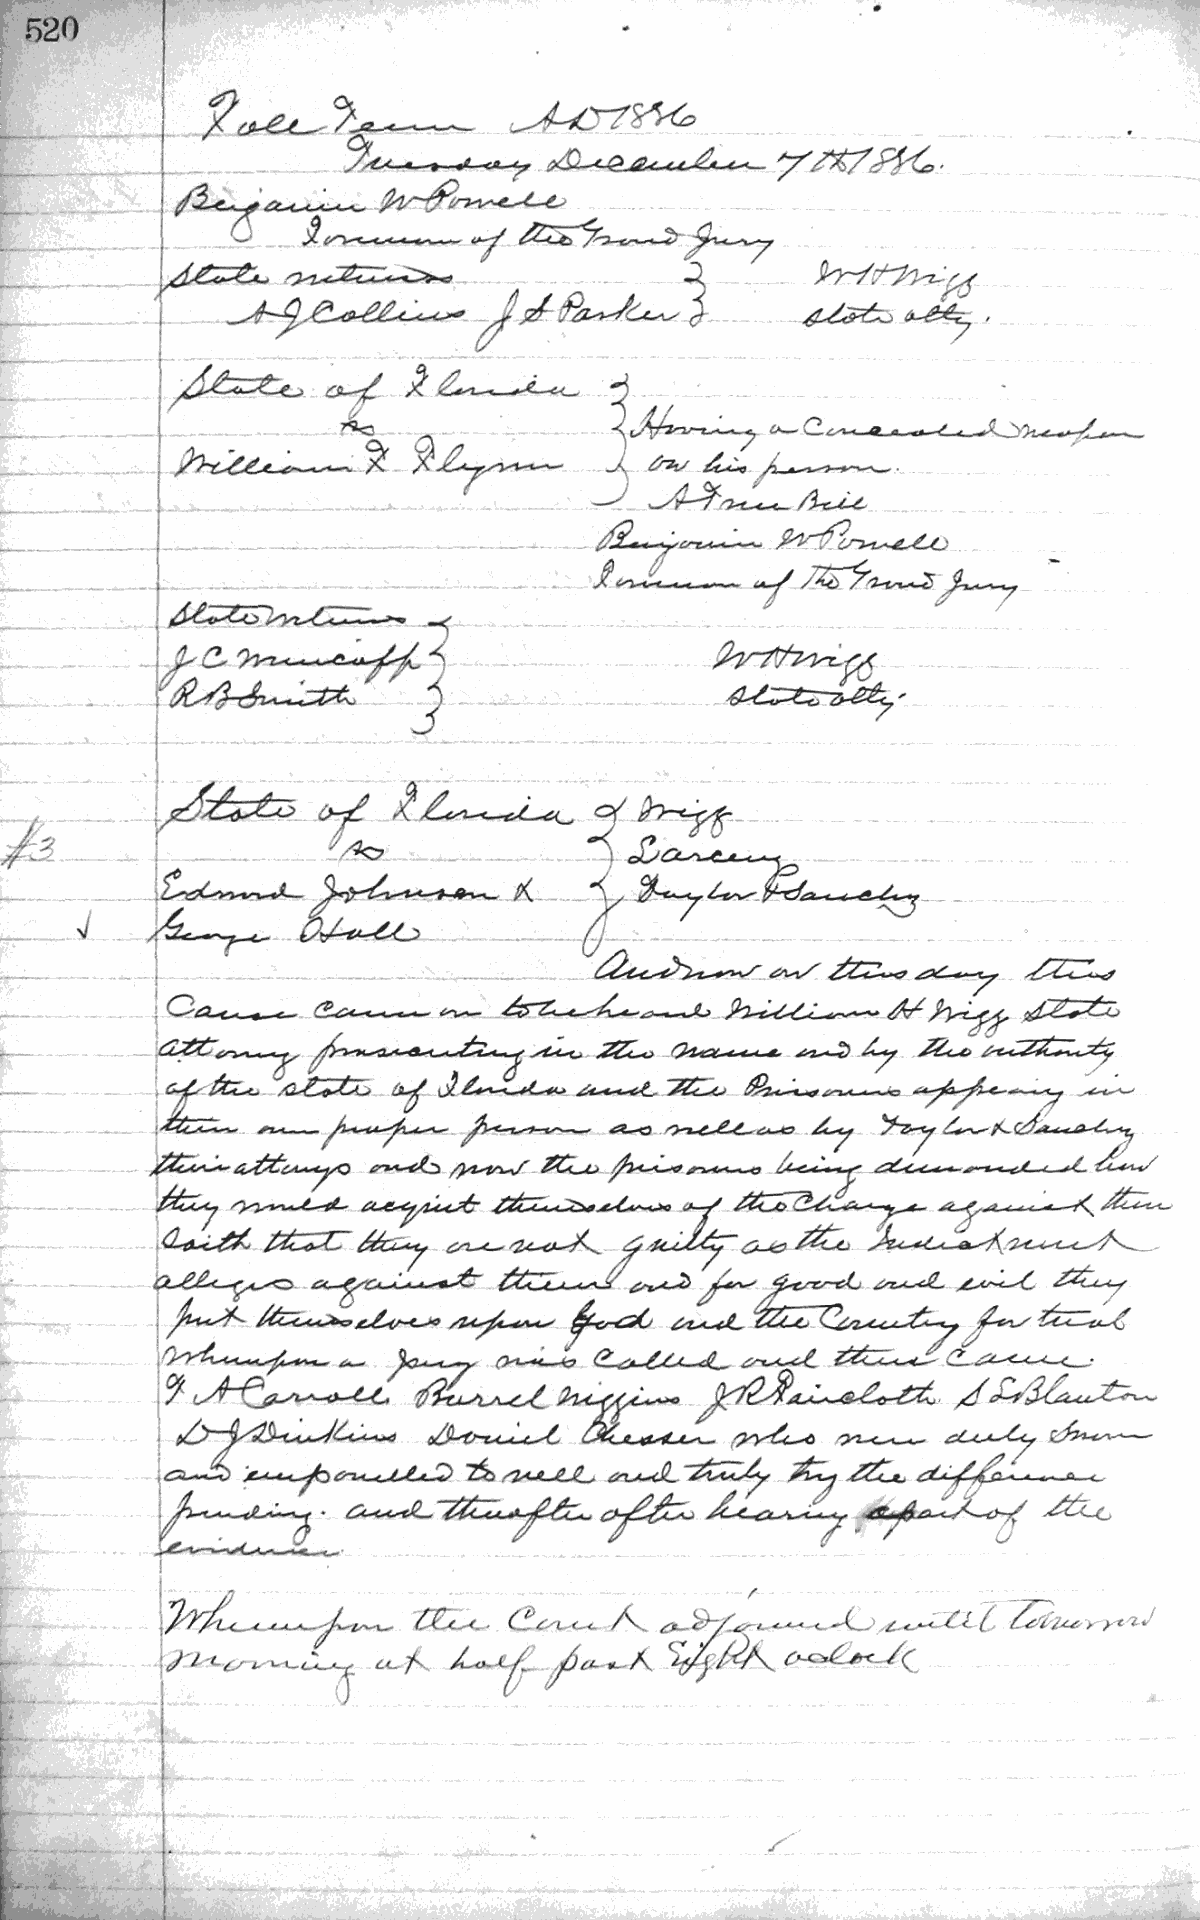 520
Fall Term AD 1886
Tuesday December 7th 1886.
Benjamin W Powell
Foreman of the Grand Jury
State witness } W H Wigg
A J Collins J S Parker } State atty.
State of Florida }
vs } Having a Concealed weapon
William F Flynn } on his person.
A True Bill
Benjamin W Powell
Foreman of The Grand Jury
State Witness }
J C } W H Wigg
R B Smith } State atty.
State of Florida } Wigg
#3 vs } Larceny
Edward Johnson & } Taylor & Sanchez
George Hall
And now on this day this
Cause came on to be heard William H Wigg State
attorney prosecuting in the name and by the authority
of the state of Florida and the Prisoners appearing in
their own proper person as well as by Taylor & Sanchez
their attorneys and now the prisoners being demanded how
they would acquit themselves of the Charge against them
Saith that they are not guilty as the Indictment
alleges against them and for good and evil they
put themselves upon God and the Country for trial
Whereupon a jury was called and there came.
F A Carroll Burrel Wiggins J R Faircloth S L Blanton
D J Dinkins Daniel Chesser who were duly Sworn
and empanelled to well and truly try the difference
pending. and thereafter after hearing a part of the
evidence
Whereupon the Court adjourned until tomorrow
morning at half past Eight oclock